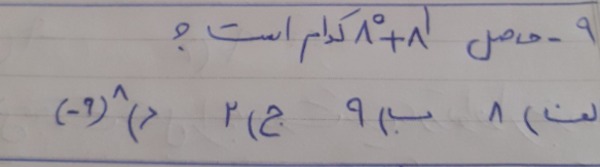 ۹- حاصل ۸⁰+۸¹ کدام است ؟
الف) ۸ ب) ۹ ج) ۲ د) (-۹)^۸